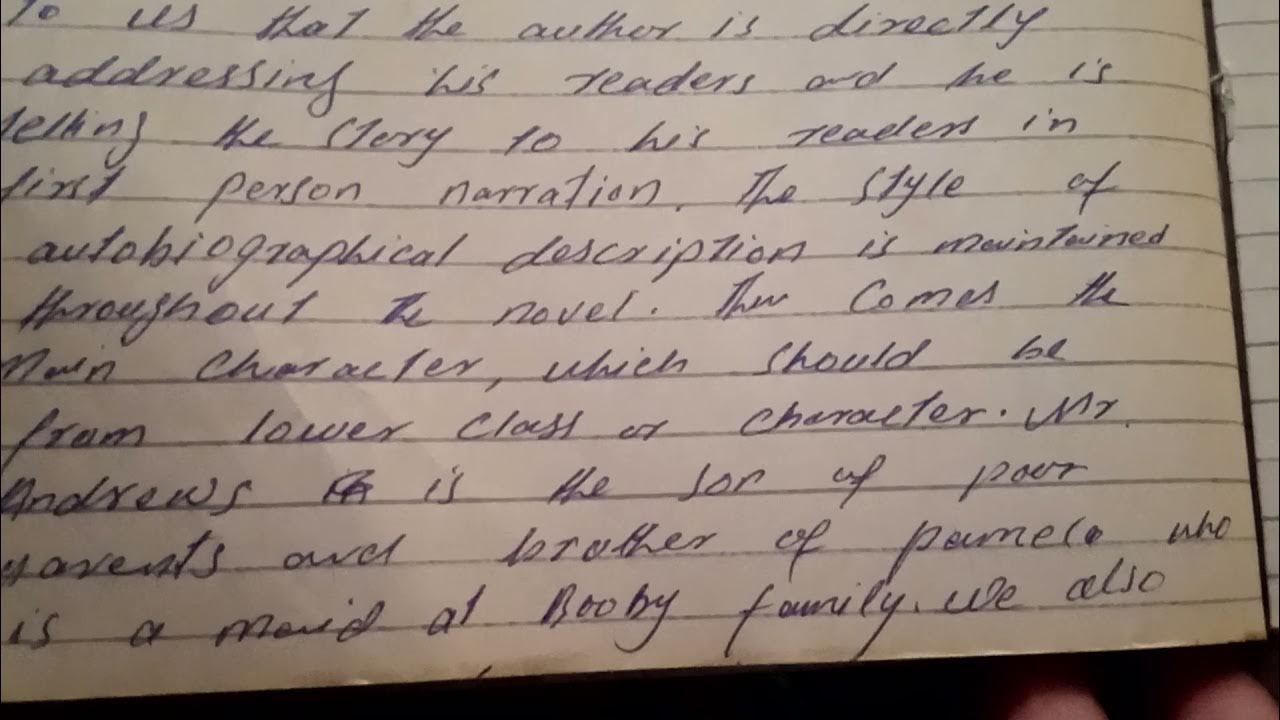 to us that the author is directly
addressing his readers and he is
telling the story to his readers in
first person narration. The style of
autobiographical description is maintained
throughout the novel. Then Comes the
Main Character, which should be
from lower Class or character. Mr.
Andrews is the son of poor
parents and brother of pamela who
is a maid at Booby family. We also